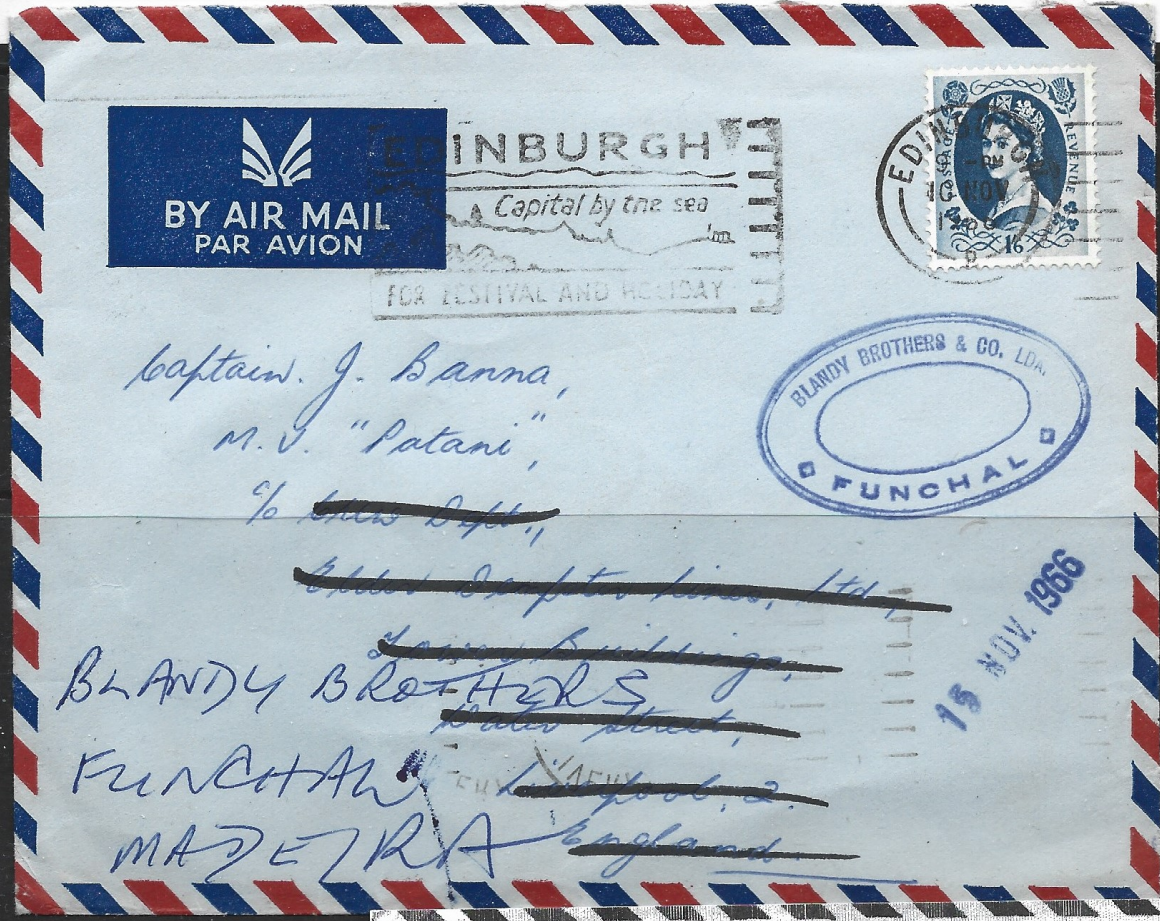 BY AIR MAIL
PAR AVION
EDINBURGH
Capital by the sea
FOR FESTIVAL AND HOLIDAY
EDINBURGH
- PM
10 NOV
1966
POSTAGE
REVENUE
1/6
BLANDY BROTHERS & CO. LDA.
FUNCHAL
Captain. J. Banna,
M.V. "Patani",
c/o Crew Dept.,
Elder Dempster Lines, Ltd.,
Tower Buildings,
Water Street,
Liverpool, 2.
England.
15 NOV. 1966
BLANDY BROTHERS
FUNCHAL
MADEIRA